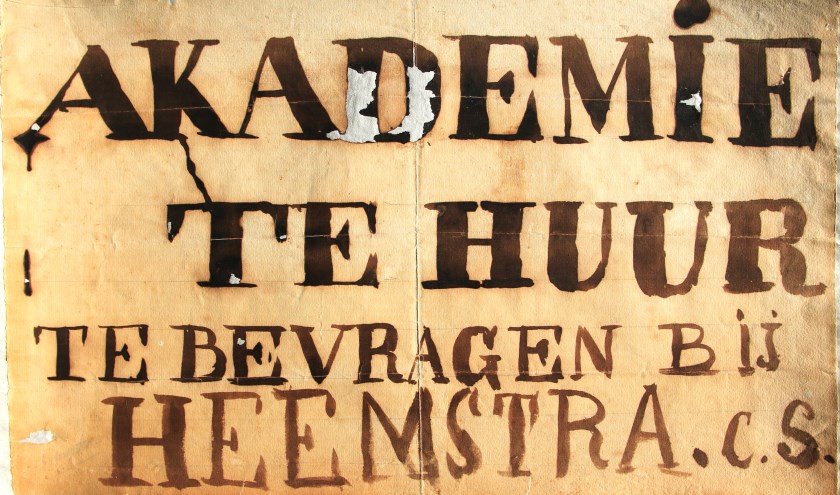 AKADEMIE
TE HUUR
TE BEVRAGEN Bij
HEEMSTRA. c.s.